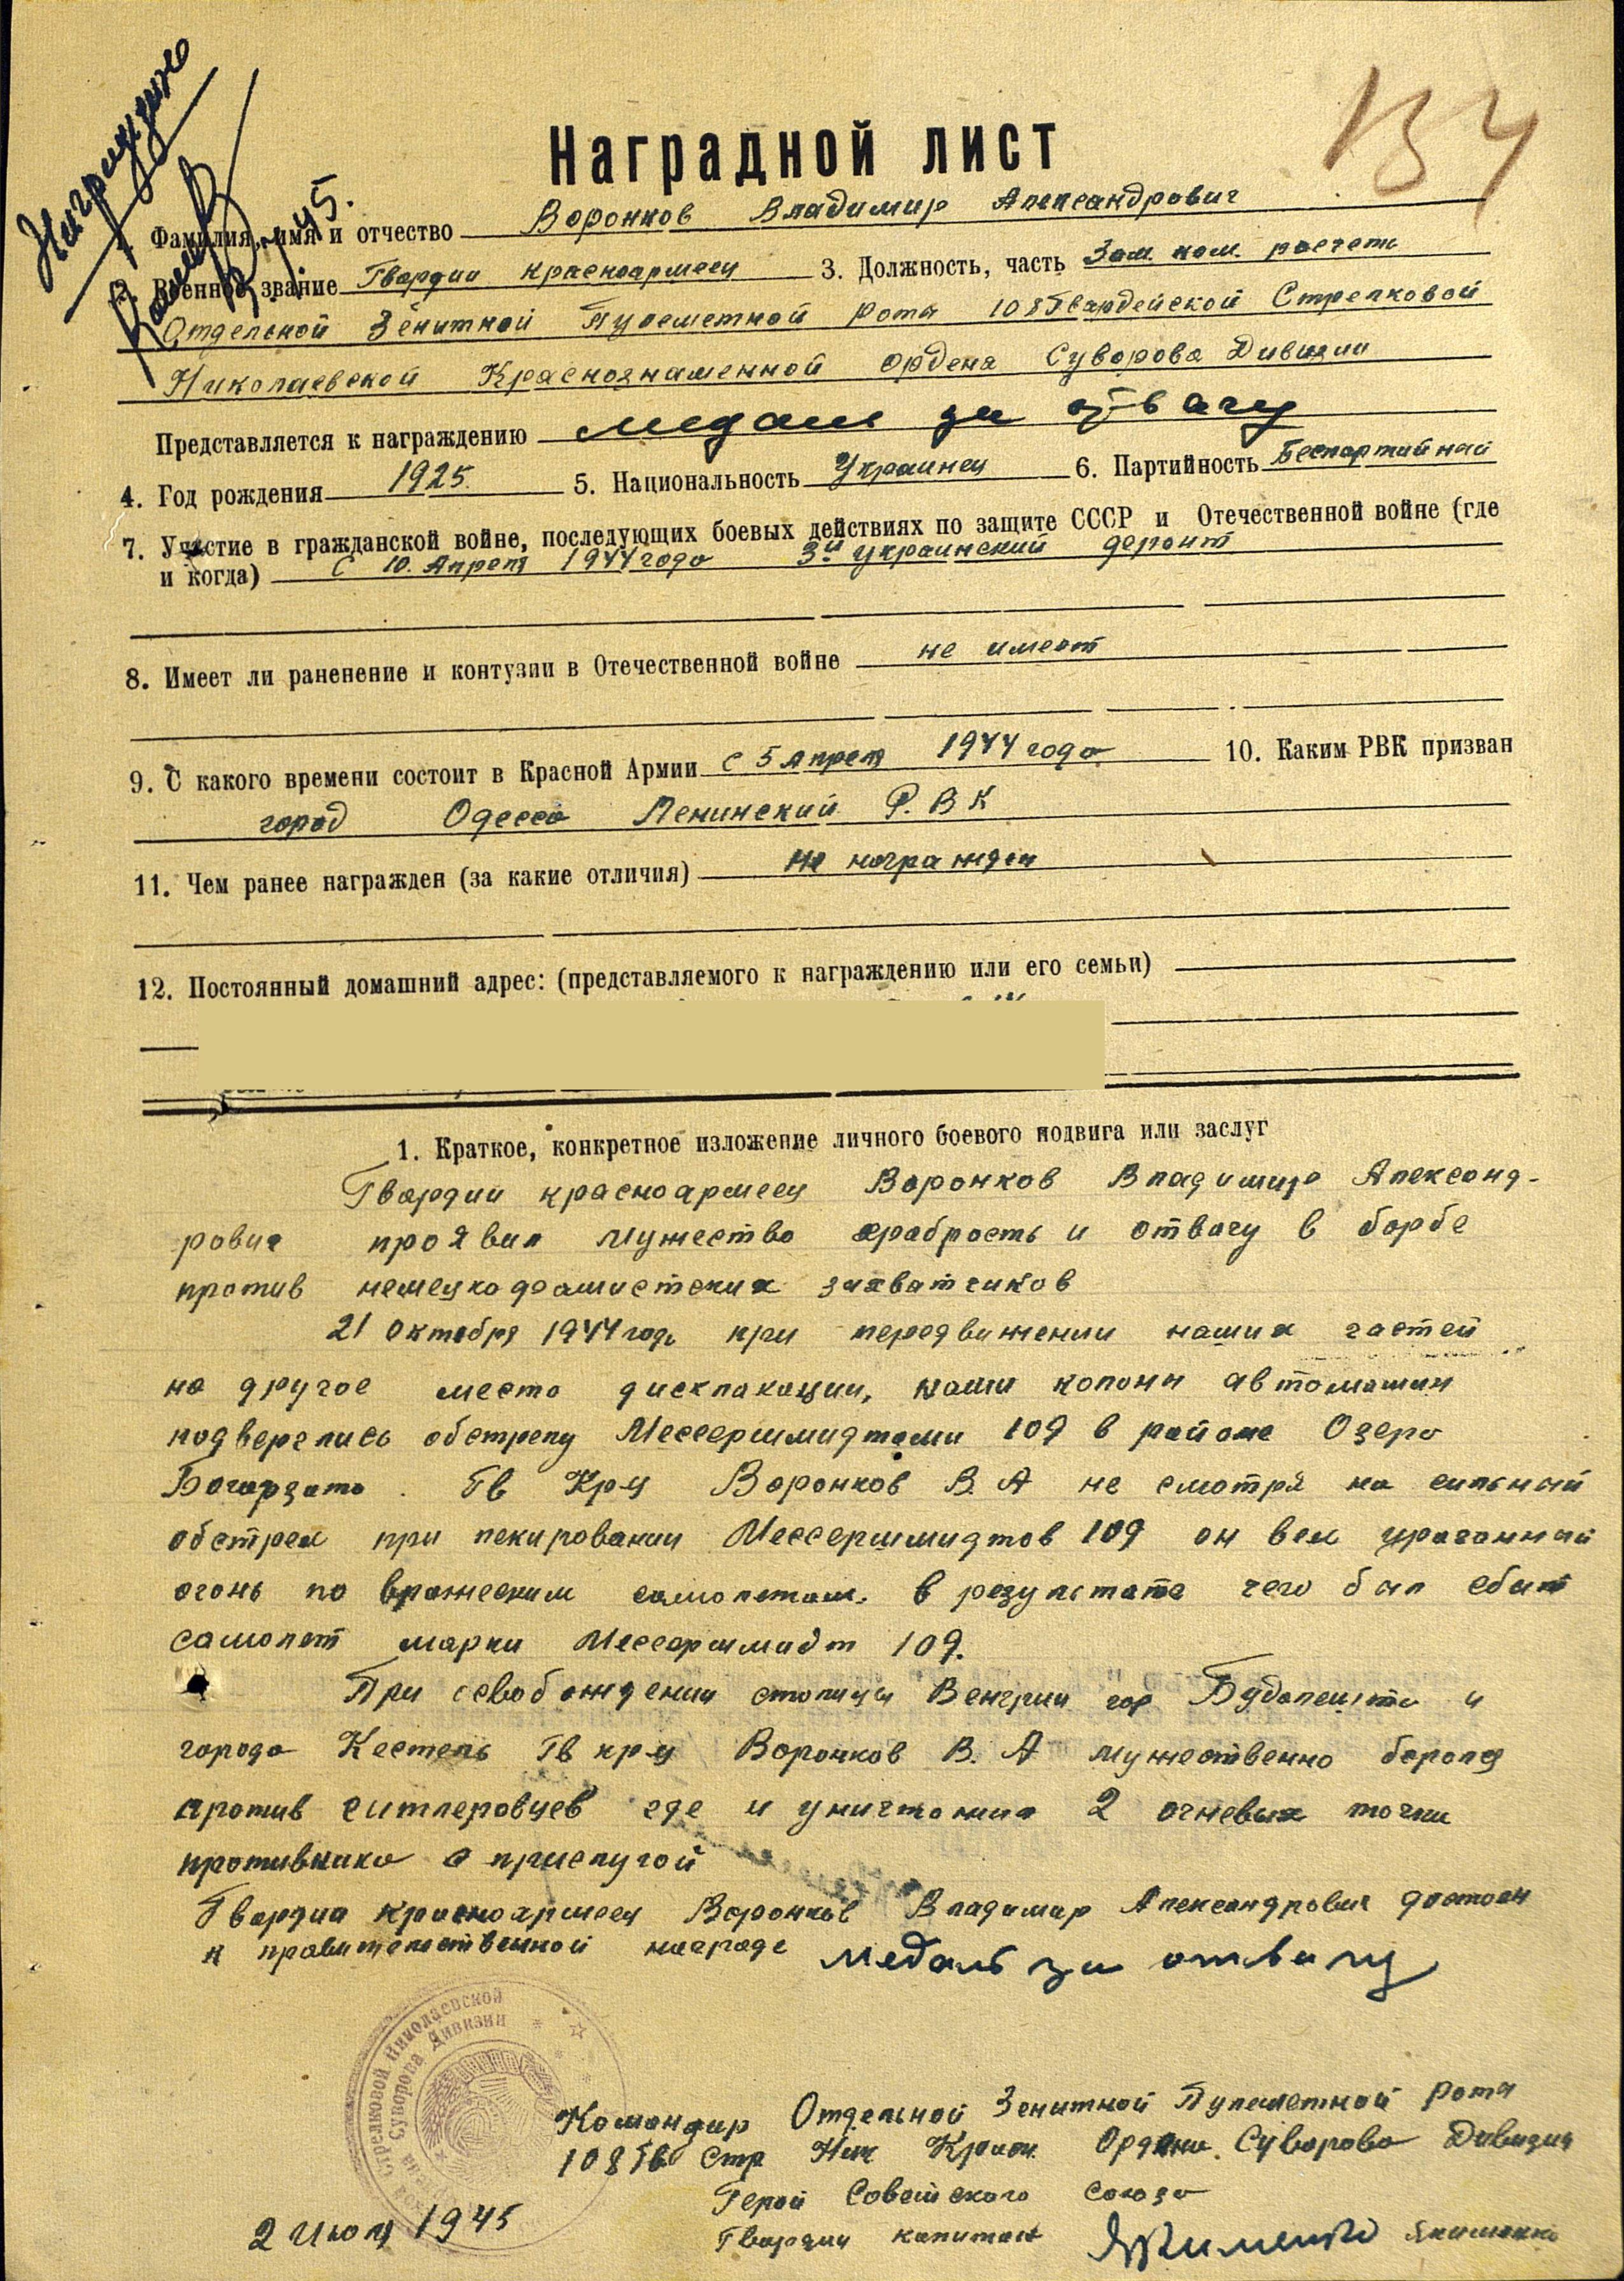 134
Награждено
Наградной лист
Фамилия, имя и отчество Воронков Владимир Александрович
2. Военное звание Гвардии красноармеец 3. Должность, часть Зам. ком. расчета
Отдельной Зенитной Пулеметной Роты 108 Гвардейской Стрелковой
Николаевской Краснознаменной ордена Суворова Дивизии
Представляется к награждению медаль за отвагу
4. Год рождения 1925. 5. Национальность Украинец 6. Партийность Беспартийный
7. Участие в гражданской войне, последующих боевых действиях по защите СССР и Отечественной войне (где
и когда) С 10. Апреля 1944 года 3й украинский фронт
8. Имеет ли раненение и контузии в Отечественной войне не имеет
9. С какого времени состоит в Красной Армии с 5 апреля 1944 года 10. Каким РВК призван
город Одесса Ленинский Р.В К
11. Чем ранее награжден (за какие отличия) Не награжден
12. Постоянный домашний адрес: (представляемого к награждению или его семьи)
1. Краткое, конкретное изложение личного боевого подвига или заслуг
Гвардии красноармеец Воронков Владимир Александ-
рович проявил мужество храбрость и отвагу в борбе
против немецкофашистских захватчиков
21 октября 1944 года при передвижении наших частей
на другое место дисклакации, наши колоны автомашин
подверглись обстрелу Мессершмидтами 109 в районе Озера
Богарзато. Гв Кр-ц Воронков В. А не смотря на сильный
обстрел при пекировании Мессершмидтов 109 он вел ураганный
огонь по вражеским самолетам. в результате чего был сбит
самолет марки Мессершмидт 109.
При освобождении столицы Венгрии гор Будапешта и
города Кестель Гв кр-ц Воронков В. А мужественно боролся
против гитлеровцев где и уничтожил 2 огневых точки
противника с прислугой
Гвардии красноармеец Воронков Владимир Александрович достоен
к правительственной награде медаль за отвагу
Стрелковой Николаевской
Суворова Дивизии
Командир Отдельной Зенитной Пулеметной Роты
108 Гв Стр Ник Красн. Ордена. Суворова Дивизии
Герой Советского союза
Гвардии капитан Якименко Якименко
2 июля 1945